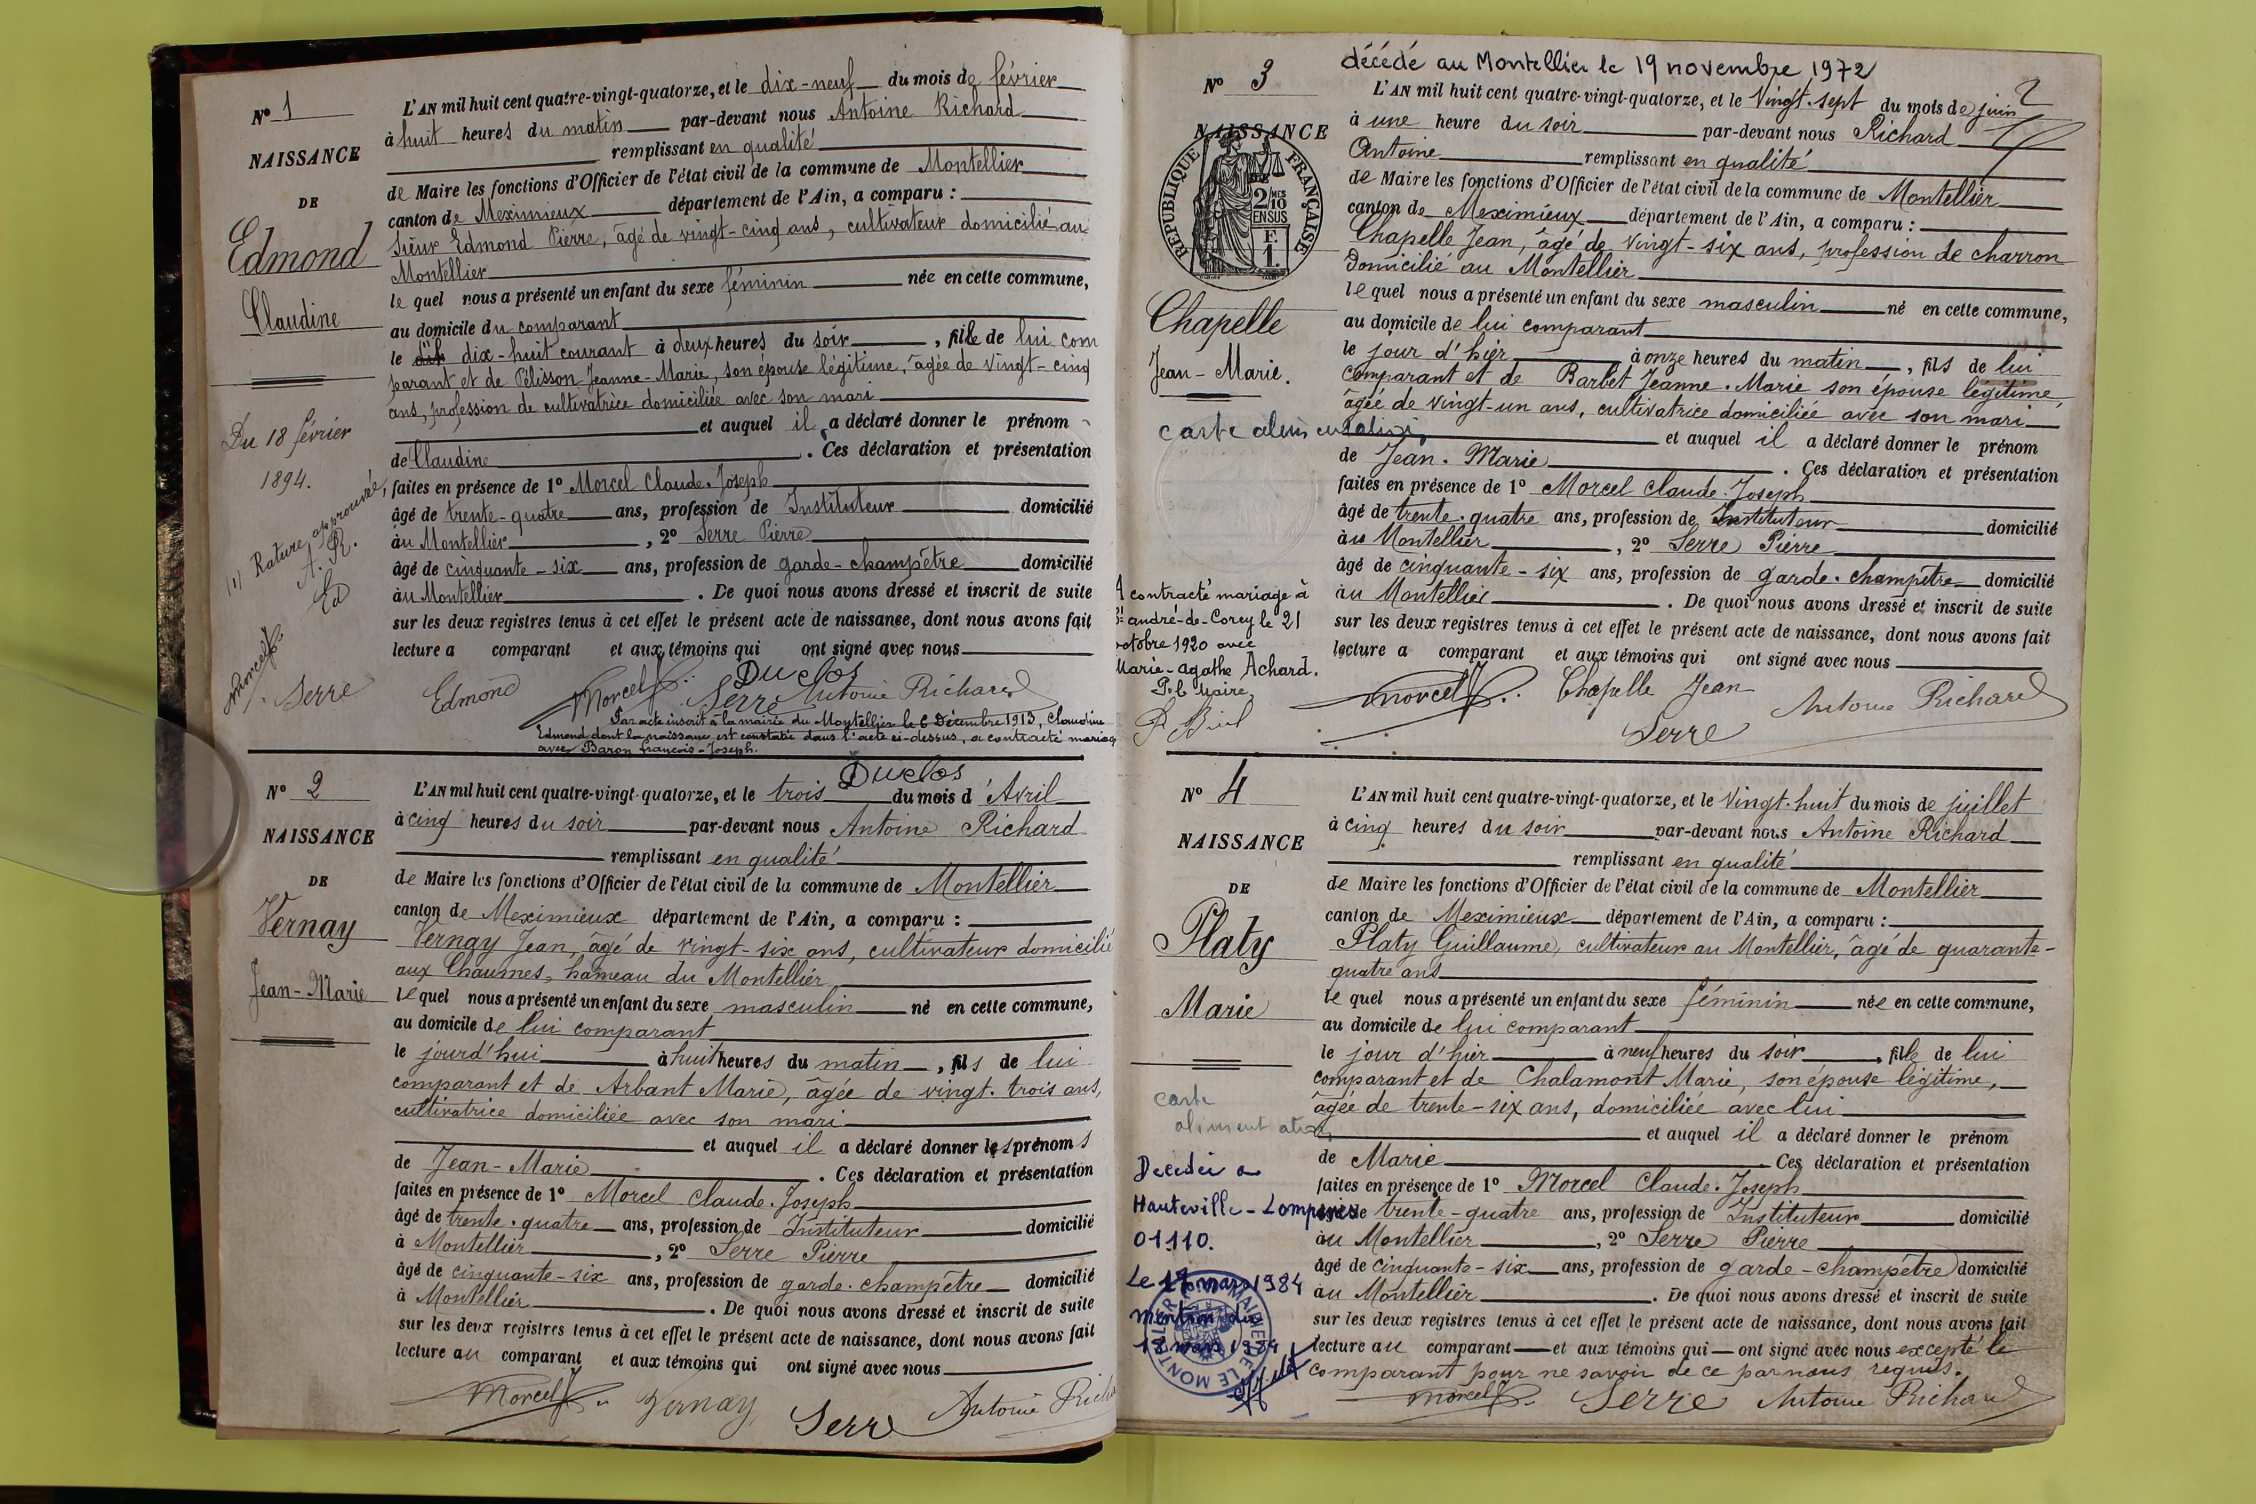 N° 1
NAISSANCE
DE
Edmond
Claudine
Du 18 février
1894.
(1) Rature approuvée,
A. R.
Ed
Morcel
Serre
L'AN mil huit cent quatre-vingt-quatorze, et le dix-neuf du mois de février
à huit heures du matin par-devant nous Antoine Richard
remplissant en qualité
de Maire les fonctions d'Officier de l'état civil de la commune de Montellier
canton de Meximieux département de l'Ain, a comparu :
Sieur Edmond Pierre, âgé de vingt-cinq ans, cultivateur domicilié au
Montellier
le quel nous a présenté un enfant du sexe féminin née en cette commune,
au domicile du comparant
le dix-huit courant à deux heures du soir, fille de lui com
parant et de Pélisson Jeanne-Marie, son épouse légitime, âgée de vingt-cinq
ans, profession de cultivatrice domiciliée avec son mari
et auquel il a déclaré donner le prénom
de Claudine. Ces déclaration et présentation
faites en présence de 1° Morcel Claude-Joseph
âgé de trente-quatre ans, profession de Instituteur domicilié
au Montellier, 2° Serre Pierre
âgé de cinquante-six ans, profession de garde-champêtre domicilié
au Montellier. De quoi nous avons dressé et inscrit de suite
sur les deux registres tenus à cet effet le présent acte de naissance, dont nous avons fait
lecture a comparant et aux témoins qui ont signé avec nous
Edmond Morcel Serre Duclos Antoine Richard
Par acte inscrit à la mairie du Montellier le 6 Décembre 1913, Claudine
Edmond dont la naissance est constatée dans l'acte ci-dessus, a contracté mariag
avec Baron françois-Joseph.
Duclos
N° 2
NAISSANCE
DE
Vernay
Jean-Marie
L'AN mil huit cent quatre-vingt-quatorze, et le trois du mois d'Avril
à cinq heures du soir par-devant nous Antoine Richard
remplissant en qualité
de Maire les fonctions d'Officier de l'état civil de la commune de Montellier
canton de Meximieux département de l'Ain, a comparu :
Vernay Jean, âgé de vingt-six ans, cultivateur domicilié
aux Chaumes, hameau du Montellier
le quel nous a présenté un enfant du sexe masculin né en cette commune,
au domicile de lui comparant
le jourd'hui à huit heures du matin, fils de lui
comparant et de Arbant Marie, âgée de vingt-trois ans,
cultivatrice domiciliée avec son mari
et auquel il a déclaré donner les prénoms
de Jean-Marie. Ces déclaration et présentation
faites en présence de 1° Morcel Claude-Joseph
âgé de trente-quatre ans, profession de Instituteur domicilié
à Montellier, 2° Serre Pierre
âgé de cinquante-six ans, profession de garde-champêtre domicilié
à Montellier. De quoi nous avons dressé et inscrit de suite
sur les deux registres tenus à cet effet le présent acte de naissance, dont nous avons fait
lecture au comparant et aux témoins qui ont signé avec nous
Morcel Vernay Serre Antoine Rich
décédé au Montellier le 19 novembre 1972
2
N° 3
NAISSANCE
REPUBLIQUE FRANÇAISE
2/10 EN SUS
F. 1.
Chapelle
Jean-Marie.
carte alimentation
A contracté mariage à
St andré-de-Corcy le 21
octobre 1920 avec
Marie-Agathe Achard.
P. le Maire,
L'AN mil huit cent quatre-vingt-quatorze, et le vingt-sept du mois de juin
à une heure du soir par-devant nous Richard
Antoine remplissant en qualité
de Maire les fonctions d'Officier de l'état civil de la commune de Montellier
canton de Meximieux département de l'Ain, a comparu :
Chapelle Jean, âgé de vingt-six ans, profession de charron
domicilié au Montellier
le quel nous a présenté un enfant du sexe masculin né en cette commune,
au domicile de lui comparant
le jour d'hier à onze heures du matin, fils de lui
comparant et de Barbet Jeanne-Marie son épouse légitime,
âgée de vingt-un ans, cultivatrice domiciliée avec son mari
et auquel il a déclaré donner le prénom
de Jean-Marie. Ces déclaration et présentation
faites en présence de 1° Morcel Claude-Joseph
âgé de trente-quatre ans, profession de Instituteur domicilié
au Montellier, 2° Serre Pierre
âgé de cinquante-six ans, profession de garde-champêtre domicilié
au Montellier. De quoi nous avons dressé et inscrit de suite
sur les deux registres tenus à cet effet le présent acte de naissance, dont nous avons fait
lecture a comparant et aux témoins qui ont signé avec nous
Morcel Chapelle Jean Antoine Richard
Serre
N° 4
NAISSANCE
DE
Platy
Marie
carte
alimentation
Décédée a
Hauteville-Lompnes
01110.
Le 17 mars 1984
mention du
18 mars 1984
MAIRIE DE LE MONTELLIER
L'AN mil huit cent quatre-vingt-quatorze, et le vingt-huit du mois de juillet
à cinq heures du soir par-devant nous Antoine Richard
remplissant en qualité
de Maire les fonctions d'Officier de l'état civil de la commune de Montellier
canton de Meximieux département de l'Ain, a comparu :
Platy Guillaume, cultivateur au Montellier, âgé de quarante-
quatre ans
le quel nous a présenté un enfant du sexe féminin née en cette commune,
au domicile de lui comparant
le jour d'hier à neuf heures du soir, fille de lui
comparant et de Chalamont Marie, son épouse légitime,
âgée de trente-six ans, domiciliée avec lui
et auquel il a déclaré donner le prénom
de Marie Ces déclaration et présentation
faites en présence de 1° Morcel Claude-Joseph
âgé de trente-quatre ans, profession de Instituteur domicilié
au Montellier, 2° Serre Pierre
âgé de cinquante-six ans, profession de garde-champêtre domicilié
au Montellier. De quoi nous avons dressé et inscrit de suite
sur les deux registres tenus à cet effet le présent acte de naissance, dont nous avons fait
lecture au comparant et aux témoins qui ont signé avec nous excepté le
comparant pour ne savoir de ce par nous requis.
Morcel Serre Antoine Richard